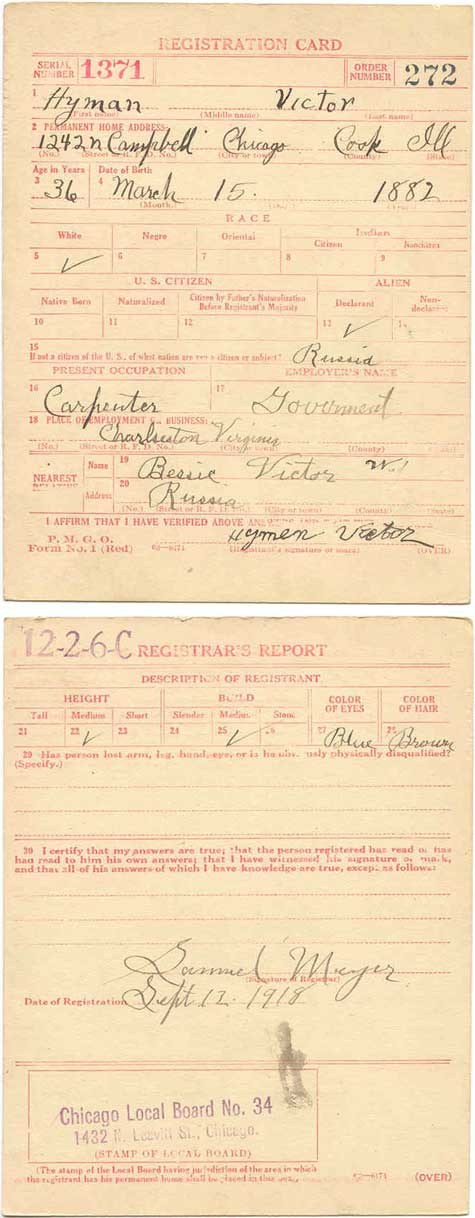 REGISTRATION CARD
SERIAL NUMBER 1371 ORDER NUMBER 272
1 Hyman Victor
(First name) (Middle name) (Last name)
2 PERMANENT HOME ADDRESS:
1242 N Campbell Chicago Cook Ill
(No.) (Street or R. F. D. No.) (City or town) (County) (State)
Age in Years Date of Birth:
3 36 4 March 15. 1882
(Month.)
RACE
White Negro Oriental Indian
Citizen Noncitizen
5 ✓ 6 7 8 9
U. S. CITIZEN ALIEN
Native Born Naturalized Citizen by Father's Naturalization Before Registrant's Majority Declarant Non-declarant
10 11 12 13 ✓
15
If not a citizen of the U. S., of what nation are you a citizen or subject? Russia
PRESENT OCCUPATION EMPLOYER'S NAME
16 Carpenter 17 Goverment
18 PLACE OF EMPLOYMENT OR BUSINESS:
Charlseston Virginia
(No.) (Street or R. F. D. No.) (City or town) (County) (State)
NEAREST RELATIVE Name 19 Bessie Victor
Address 20 Russia
(No.) (Street or R. F. D. No.) (City or town) (County) (State)
I AFFIRM THAT I HAVE VERIFIED ABOVE ANSWERS AND
P. M. G. O.
Form No. 1 (Red) Hymen Victor
(Registrant's signature or mark) (OVER)
12-2-6-C REGISTRAR'S REPORT
DESCRIPTION OF REGISTRANT
HEIGHT BUILD COLOR OF EYES COLOR OF HAIR
Tall Medium Short Slender Medium Stout
21 22 ✓ 23 24 25 ✓ 26 27 Blue 28 Brown
29 Has person lost arm, leg, hand, eye, or is he obviously physically disqualified?
(Specify.)
30 I certify that my answers are true; that the person registered has read or has
had read to him his own answers; that I have witnessed his signature or mark,
and that all of his answers of which I have knowledge are true, except as follows:
Samuel Meyer
(Signature of Registrar)
Date of Registration Sept 12. 1918
Chicago Local Board No. 34
1432 N. Leavitt St., Chicago.
(STAMP OF LOCAL BOARD)
(The stamp of the Local Board having jurisdiction of the area in which
the registrant has his permanent home shall be placed in this box.) (OVER)